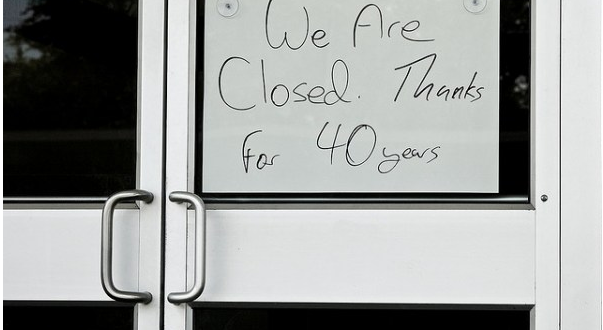 We Are
Closed. Thanks
For 40 years